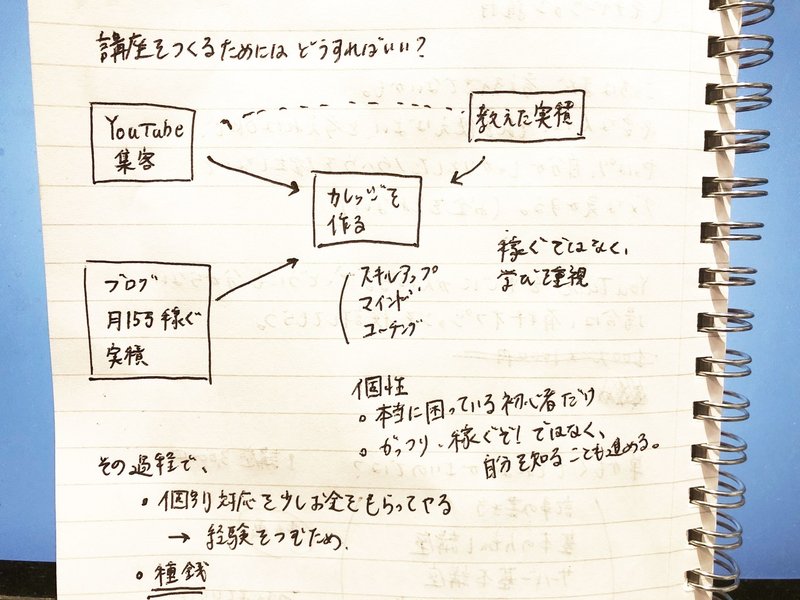 講座をつくるためにはどうすればいい?
YouTube
集客
教えた実績
カレッジを
作る
ブログ
月15万稼ぐ
実績
スキルアップ
マインド
コーチング
稼ぐではなく、
学びを重視
個性
本当に困っている初心者だけ
がっつり、稼ぐぞ!ではなく、
自分を知ることも進める。
その過程で、
・個別対応を少しお金をもらってやる
→ 経験をつむため、
・種銭